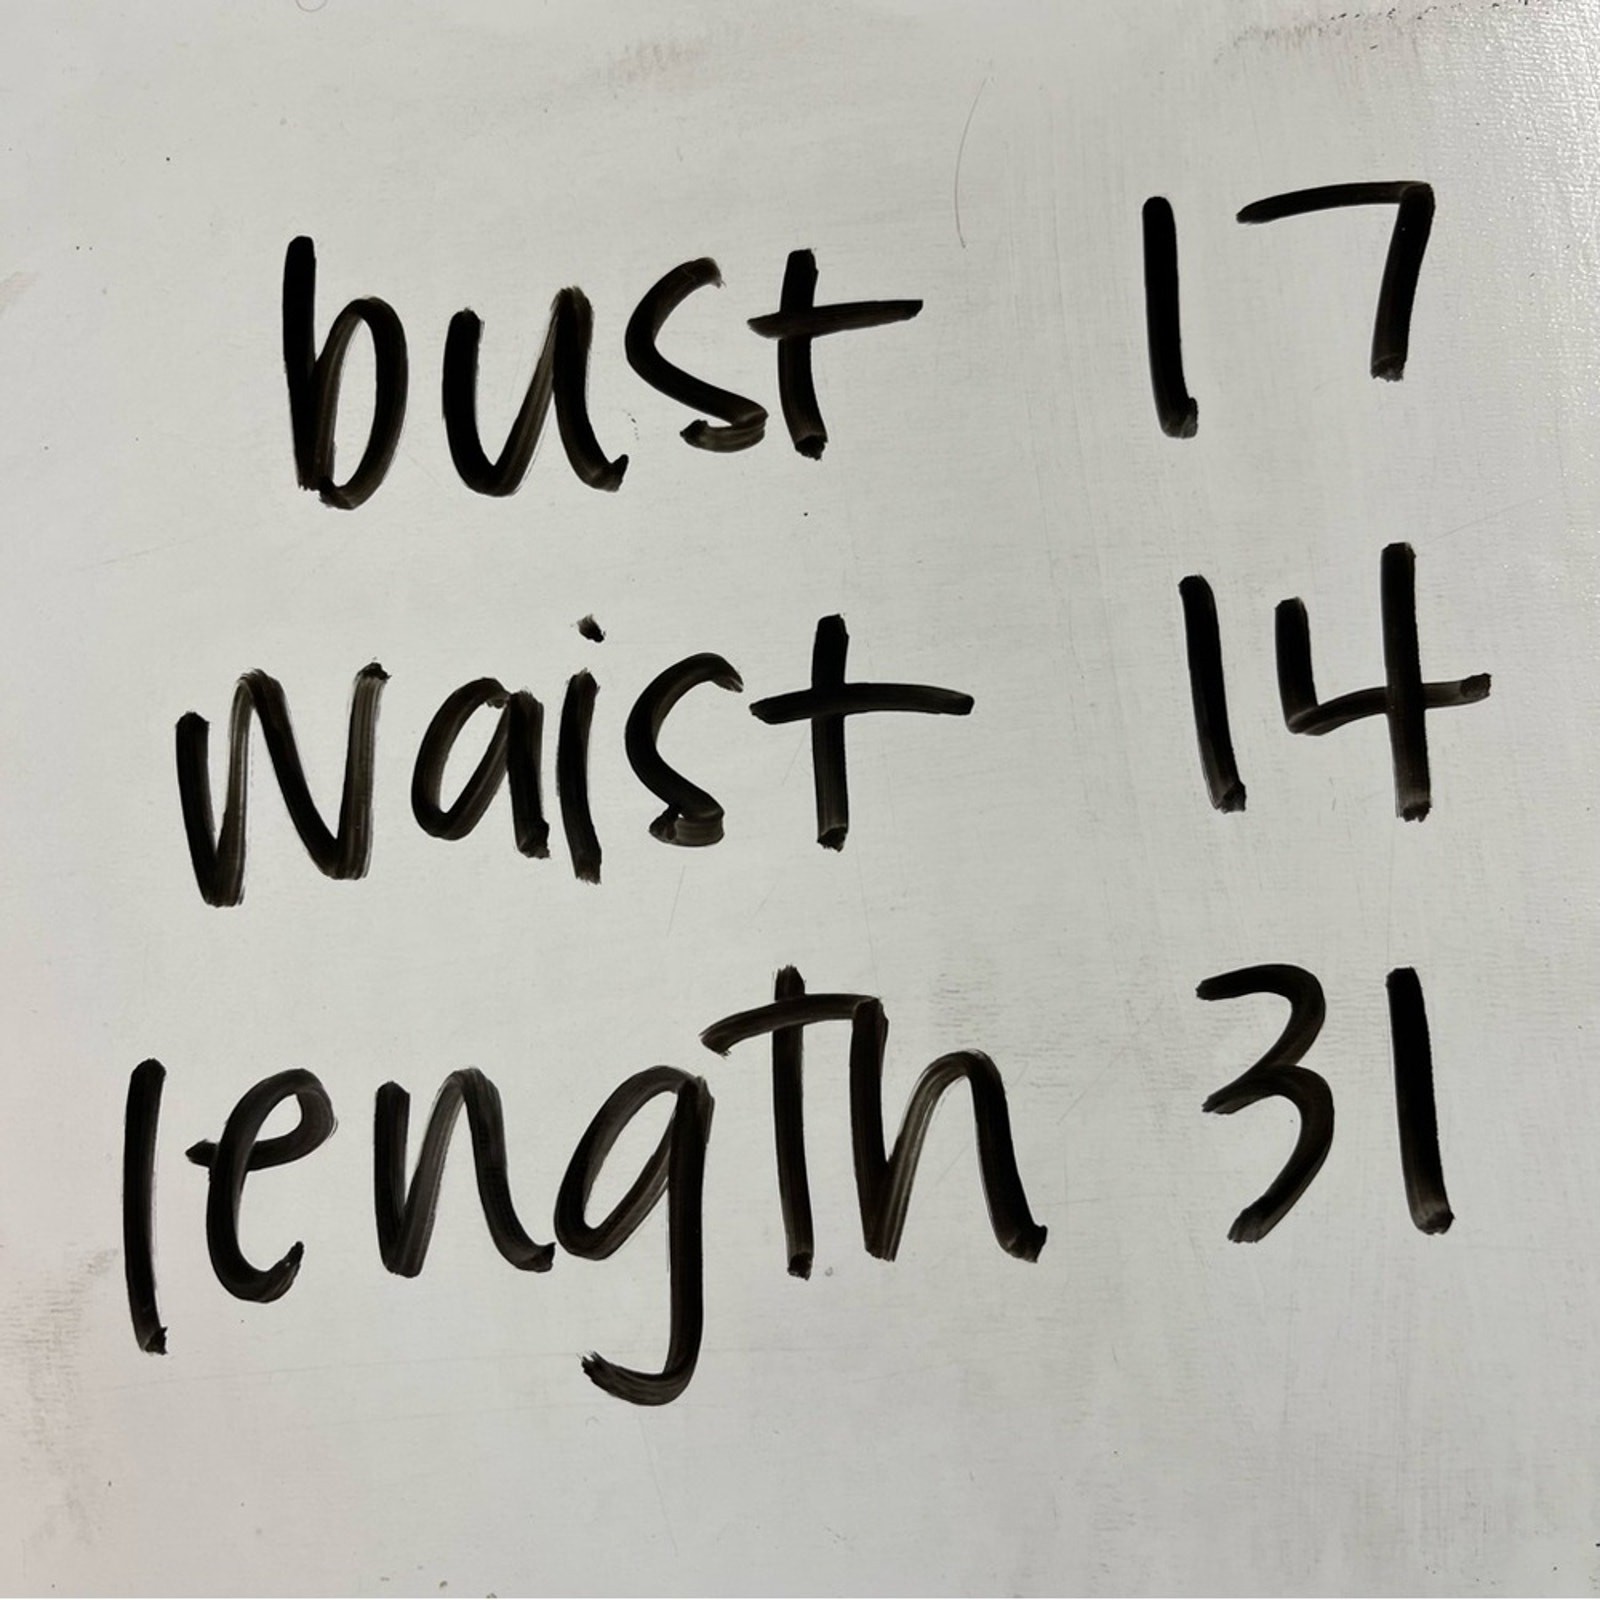 bust 17
waist 14
length 31